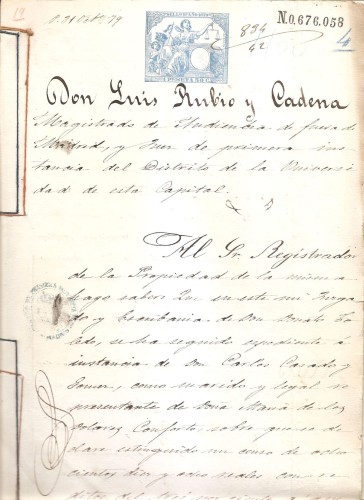 N.0,676,058
894
42
4
Don Luis Rubio y Cadena
Magistrado de Audiencia de fuera de
Madrid, y Juez de primera ins
tancia del Distrito de la Universi
dad de esta Capital.
Al Sr. Registrador
de la Propiedad de la misma
hago saber: Que en este mi Juzga
do y Escribania de Don Donato To
ledo, se ha seguido expediente á
instancia de Don Carlos Casado y
como marido y legal re
presentante de Doña Maria de los
Dolores sobre que se de
clare estinguido un censo de ocho
cientos diez y ocho reales